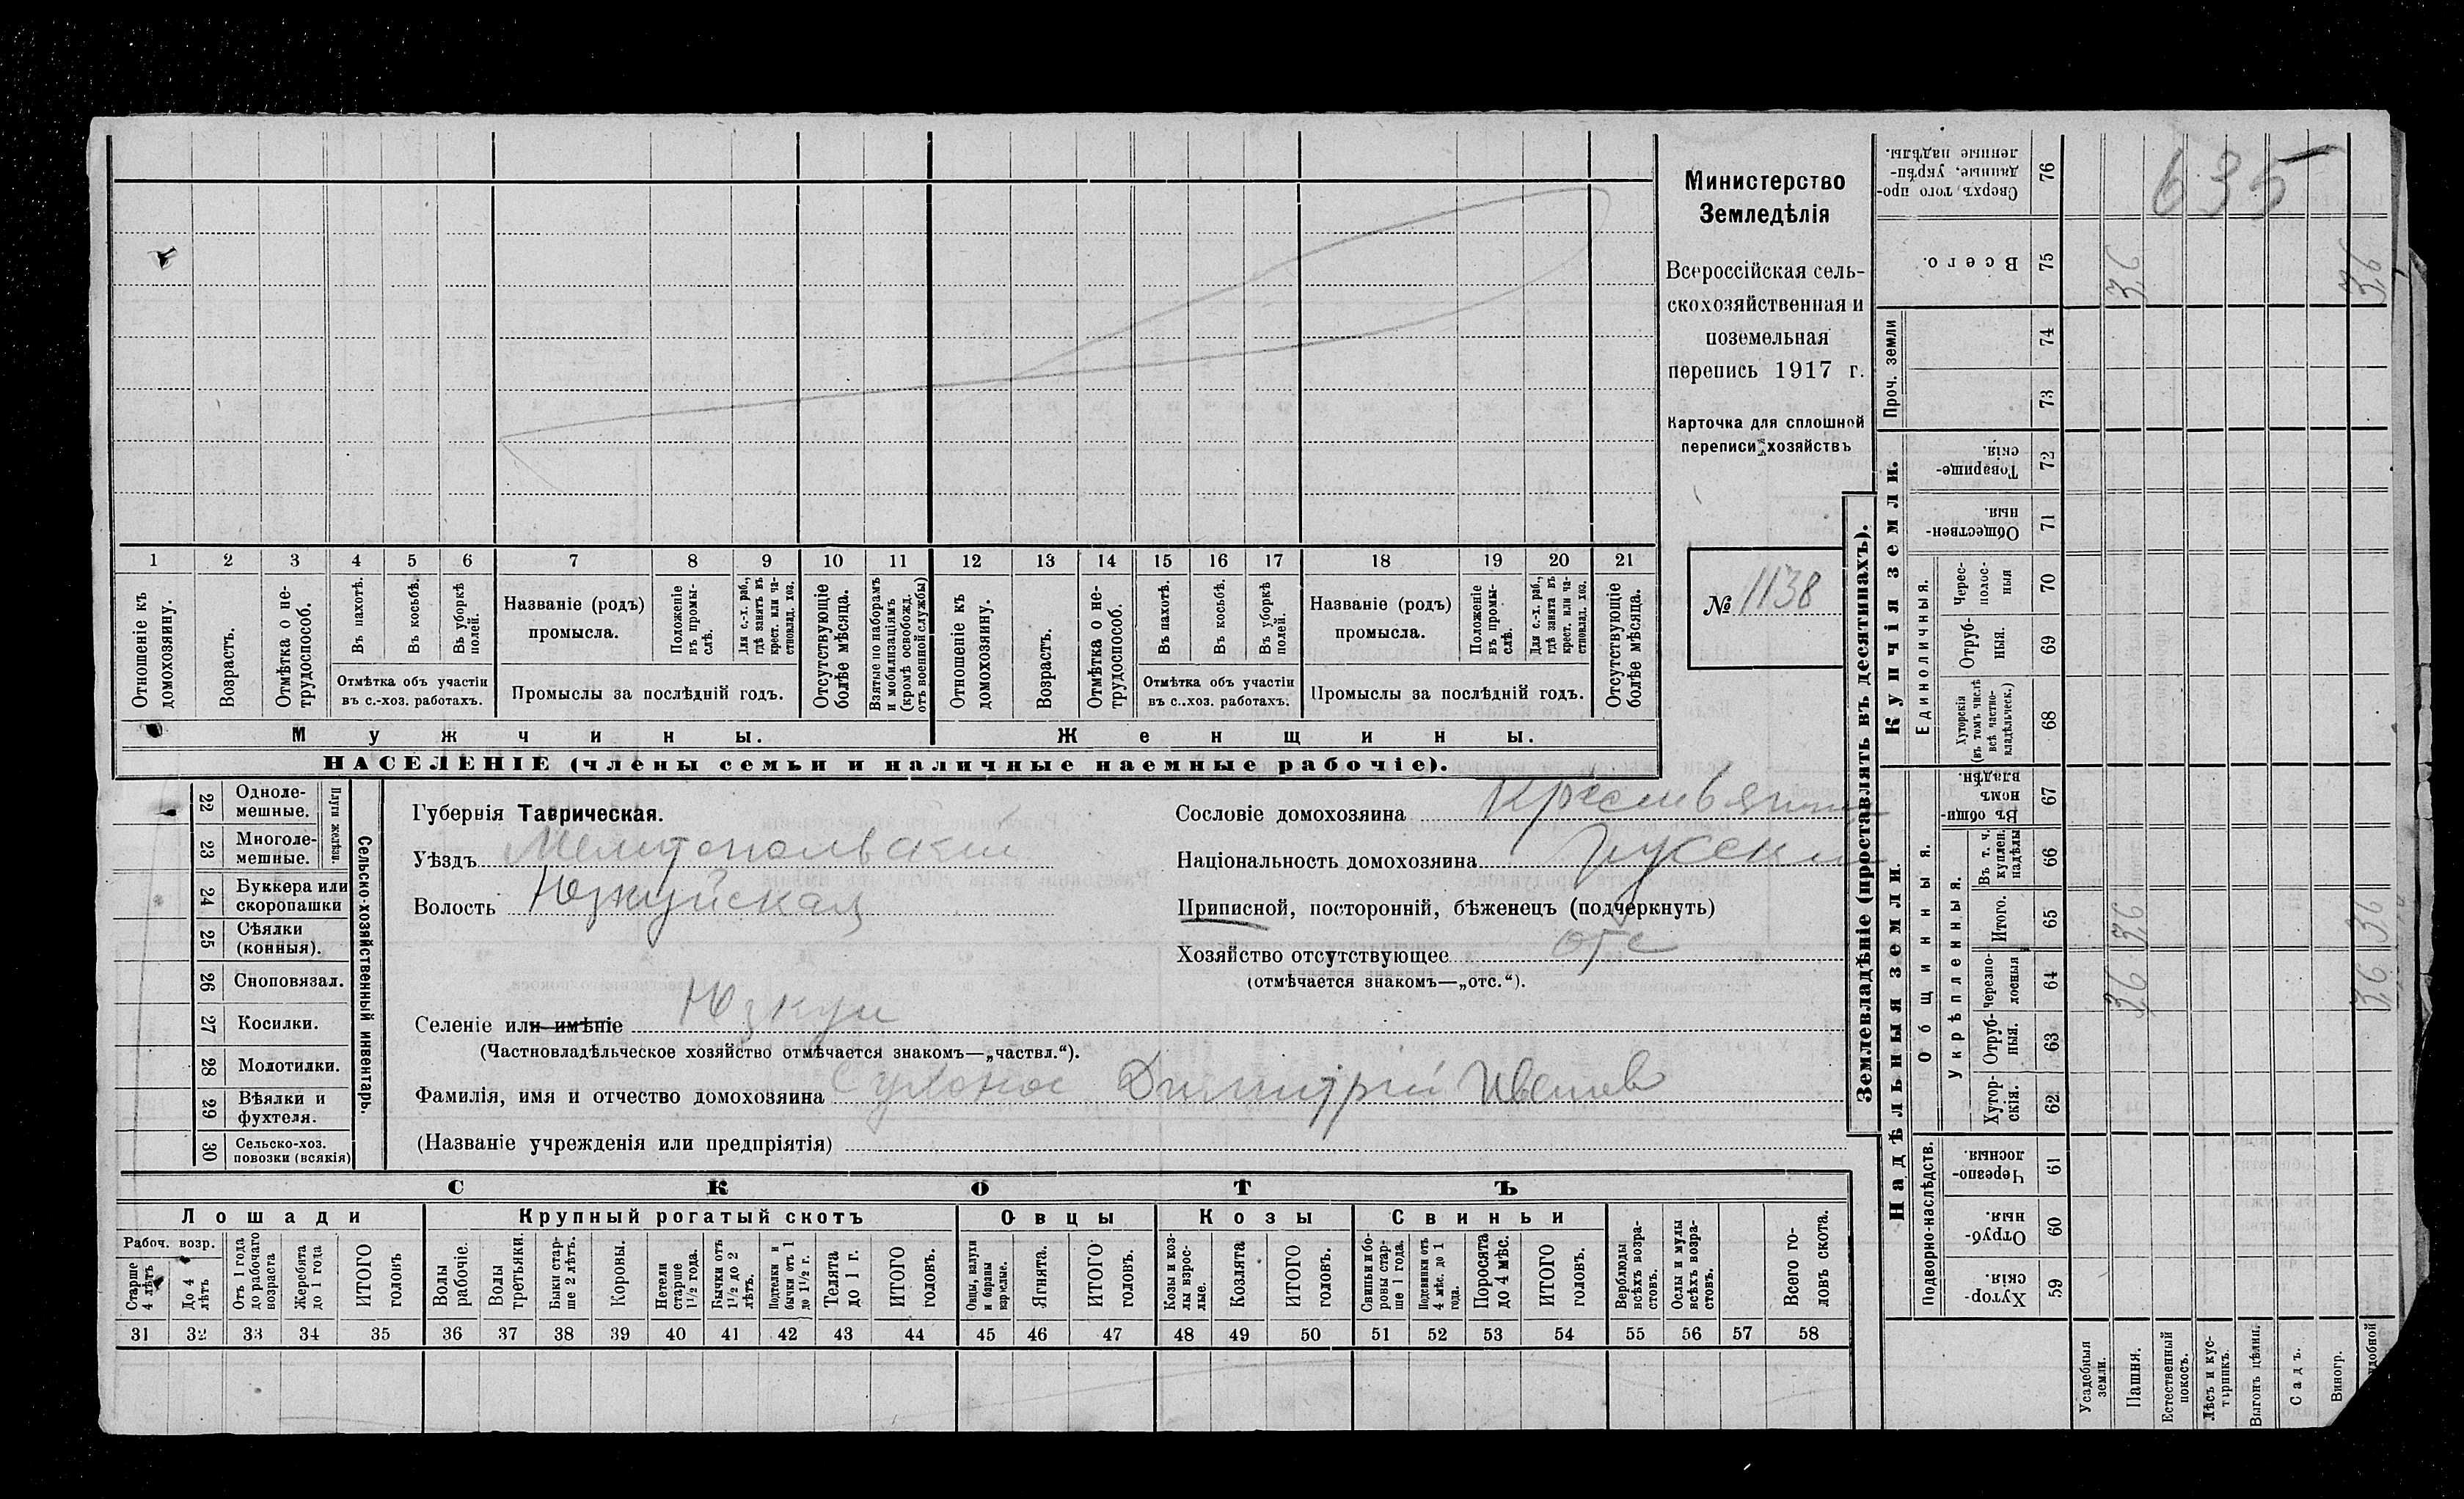 Министерство
Земледѣлія
Всероссійская сель-
скохозяйственная и
поземельная
перепись 1917 г.
Карточка для сплошной
переписи хозяйствъ
№ 1138
635
1 2 3 4 5 6 7 8 9 10 11 12 13 14 15 16 17 18 19 20 21
Отношеніе къ домохозяину.
Возрастъ.
Отмѣтка о не-трудоспособ.
Въ пахотѣ.
Въ косьбѣ.
Въ уборкѣ полей.
Отмѣтка объ участіи
въ с.-хоз. работахъ.
Названіе (родъ)
промысла.
Положеніе въ промы-слѣ.
Для с.-х. раб., гдѣ занятъ въ крест. или ча-стновлад. хоз.
Промыслы за послѣдній годъ.
Отсутствующіе болѣе мѣсяца.
Взятые по наборамъ и мобилизаціямъ (кромѣ освобожд. отъ военной службы)
Отношеніе къ домохозяину.
Возрастъ.
Отмѣтка о не-трудоспособ.
Въ пахотѣ.
Въ косьбѣ.
Въ уборкѣ полей.
Отмѣтка объ участіи
въ с..хоз. работахъ.
Названіе (родъ)
промысла.
Положеніе въ промы-слѣ.
Для с.-х. раб., гдѣ занята въ крест. или ча-стновлад. хоз.
Промыслы за послѣдній годъ.
Отсутствующіе болѣе мѣсяца.
Мужчины.
Женщины.
НАСЕЛЕНІЕ (члены семьи и наличные наемные рабочіе).
22 Одноле-мешные.
23 Многоле-мешные.
Плуги желѣз.
24 Буккера или скоропашки
25 Сѣялки (конныя).
26 Сноповязал.
27 Косилки.
28 Молотилки.
29 Вѣялки и фухтеля.
30 Сельско-хоз. повозки (всякія)
Сельско-хозяйственный инвентарь.
Губернія Таврическая.
Уѣздъ Мелитопольскій
Волость Юзкуйская
Селеніе или имѣніе Юзкуи
(Частновладѣльческое хозяйство отмѣчается знакомъ—„частвл.“).
Фамилія, имя и отчество домохозяина Сухонос Димитрій Иванов
(Названіе учрежденія или предпріятія)
Сословіе домохозяина Крестьянин
Національность домохозяина русский
Приписной, посторонній, бѣженецъ (подчеркнуть)
Хозяйство отсутствующее отс
(отмѣчается знакомъ—„отс.“).
СКОТЪ
Лошади
Крупный рогатый скотъ
Овцы
Козы
Свиньи
Рабоч. возр.
Старше 4 лѣтъ
До 4 лѣтъ
Отъ 1 года до рабочаго возраста
Жеребята до 1 года
ИТОГО головъ
Волы рабочіе.
Волы третьяки.
Быки стар-ше 2 лѣтъ.
Коровы.
Нетели старше 1½ года.
Бычки отъ 1½ до 2 лѣтъ.
Подтелки и бычки отъ 1 до 1½ г.
Телята до 1 г.
ИТОГО головъ.
Овцы, валухи и бараны взрослые.
Ягнята.
ИТОГО головъ.
Козы и коз-лы взрос-лые.
Козлята
ИТОГО головъ.
Свиньи и бо-ровы стар-ше 1 года.
Подсвинки отъ 4 мѣс. до 1 года.
Поросята до 4 мѣс.
ИТОГО головъ.
Верблюды всѣхъ возра-стовъ.
Ослы и мулы всѣхъ возра-стовъ.
Всего го-ловъ скота.
31 32 33 34 35 36 37 38 39 40 41 42 43 44 45 46 47 48 49 50 51 52 53 54 55 56 57 58
Землевладѣніе (проставлять въ десятинахъ).
Надѣльныя земли.
Купчія земли.
Проч. земли
Подворно-наслѣдств.
Общинныя.
Укрѣпленныя.
Единоличныя.
Сверхъ того про-данные, укрѣп-ленные надѣлы. 76
Всего. 75 3,6 3,6
74
73
Товарище-скія. 72
Обществен-ныя. 71
Черес-полос-ныя 70
Отруб-ныя. 69
Хуторскія (въ томъ числѣ всѣ частно-владѣльческ.) 68
Въ общин-номъ владѣн. 67
Въ т. ч. куплен. надѣлы 66
Итого. 65 3,6 3,6
Черезпо-лосныя 64 3,6 3,6
Отруб-ныя. 63
Хутор-скія. 62
Черезпо-лосныя 61
Отруб-ныя. 60
Хутор-скія. 59
Усадебныя земли.
Пашня.
Естественный покосъ.
Лѣсъ и кус-тарникъ.
Выгонъ цѣлин.
Садъ.
Виногр.